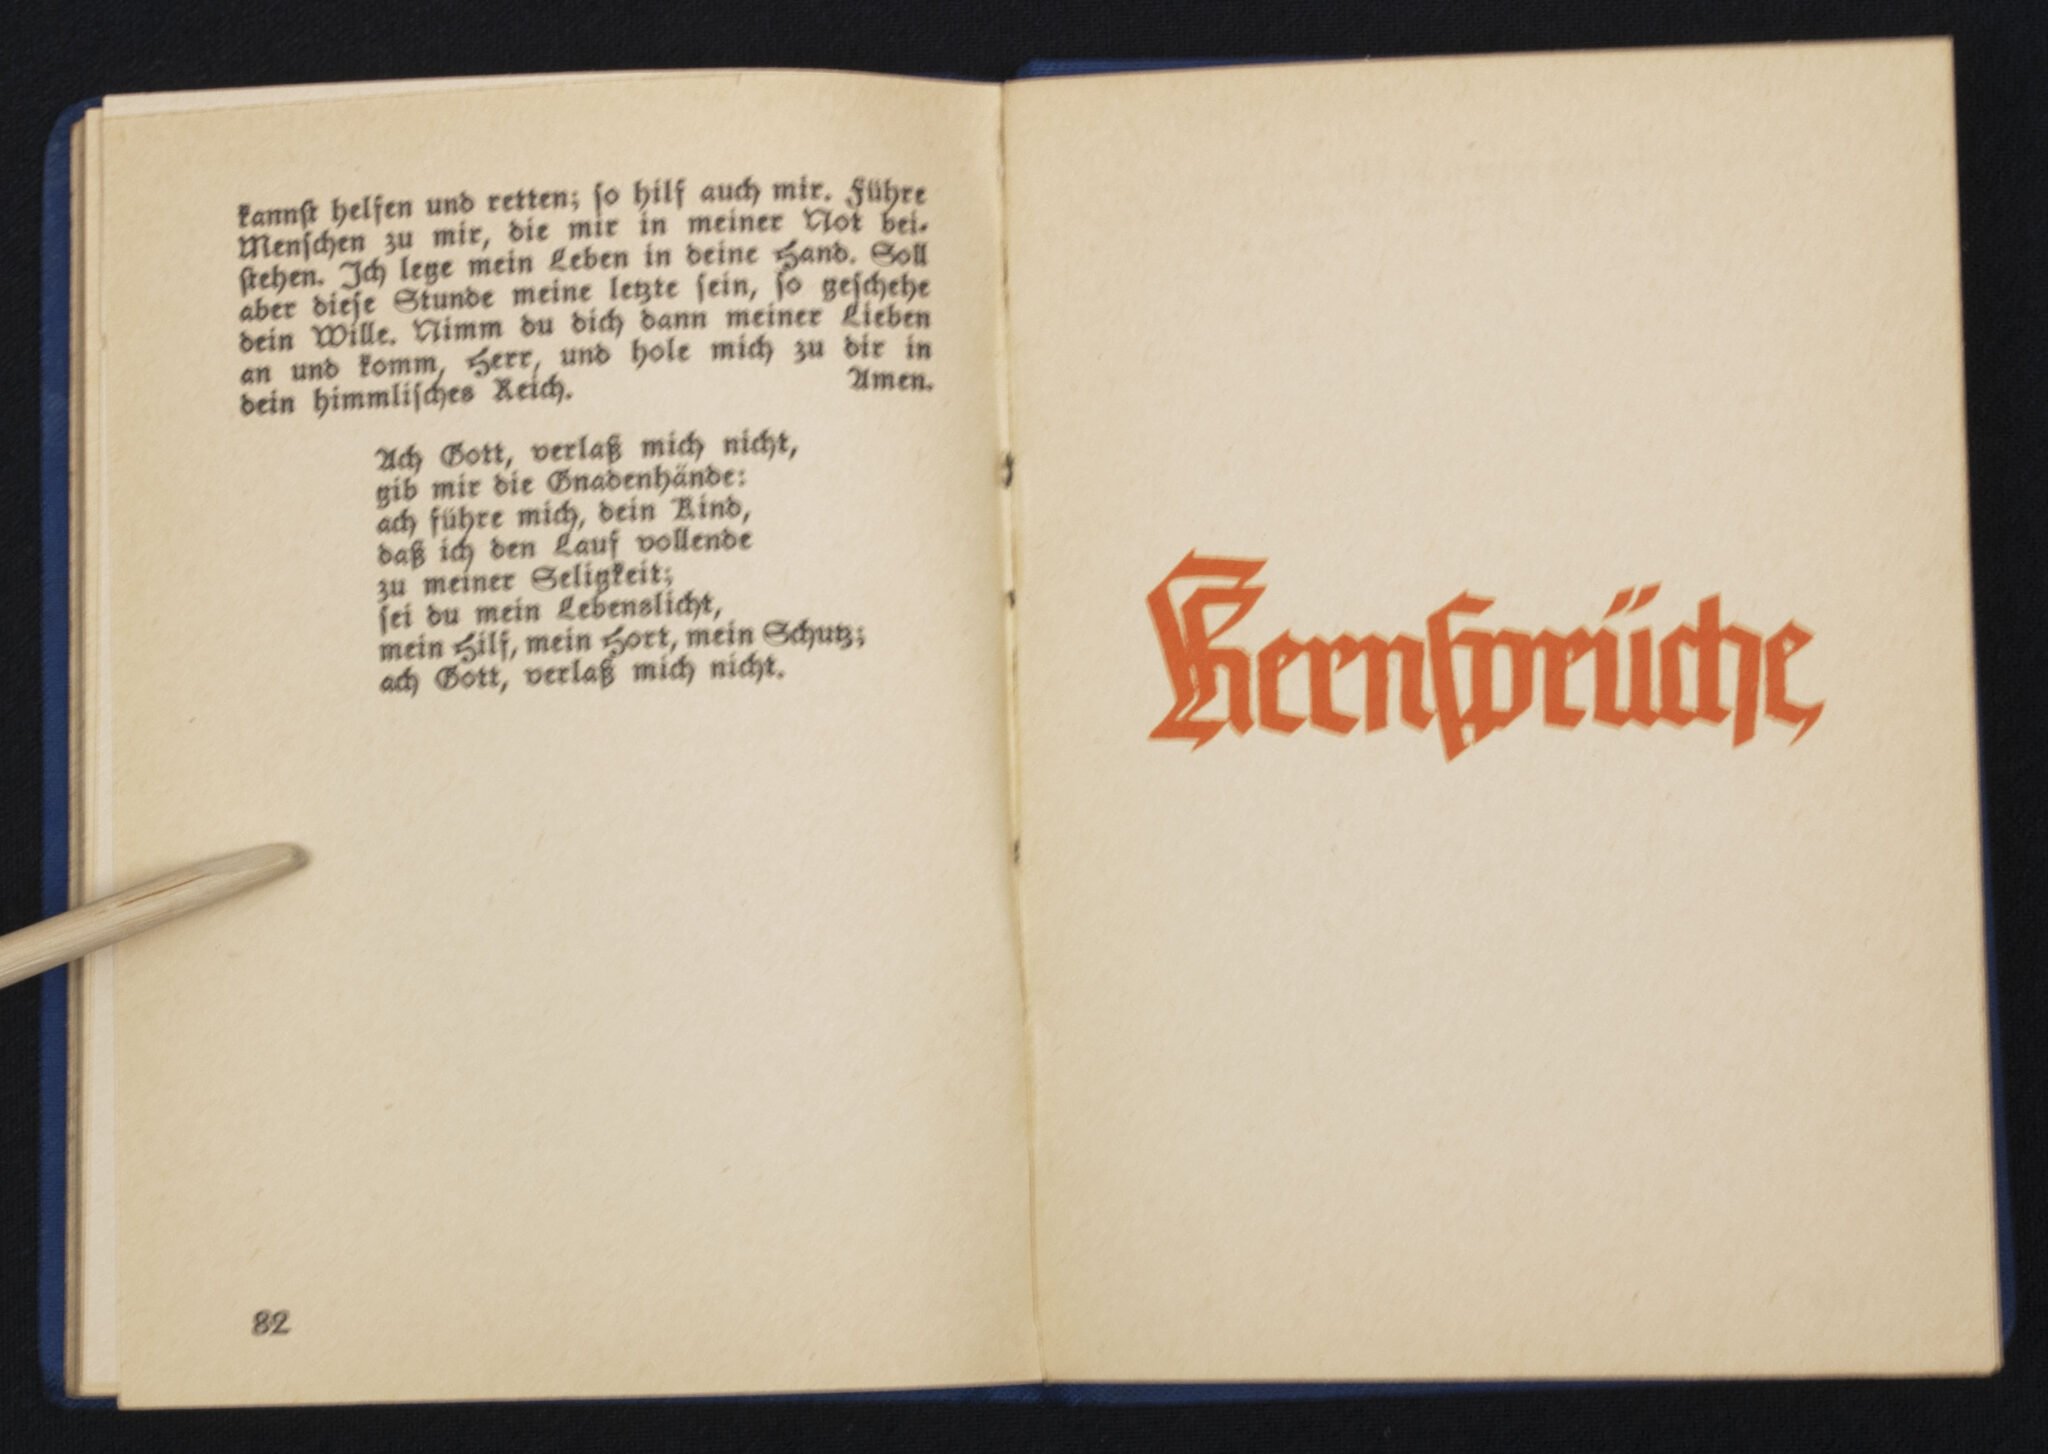 kannst helfen und retten; so hilf auch mir. Führe
Menschen zu mir, die mir in meiner Not bei-
stehen. Ich lege mein Leben in deine Hand. Soll
aber diese Stunde meine letzte sein, so geschehe
dein Wille. Nimm du dich dann meiner Lieben
an und komm, Herr, und hole mich zu dir in
dein himmlisches Reich. Amen.
Ach Gott, verlaß mich nicht,
gib mir die Gnadenhände:
ach führe mich, dein Kind,
daß ich den Lauf vollende
zu meiner Seligkeit;
sei du mein Lebenslicht,
mein Hilf, mein Hort, mein Schutz;
ach Gott, verlaß mich nicht.
82
Kernsprüche